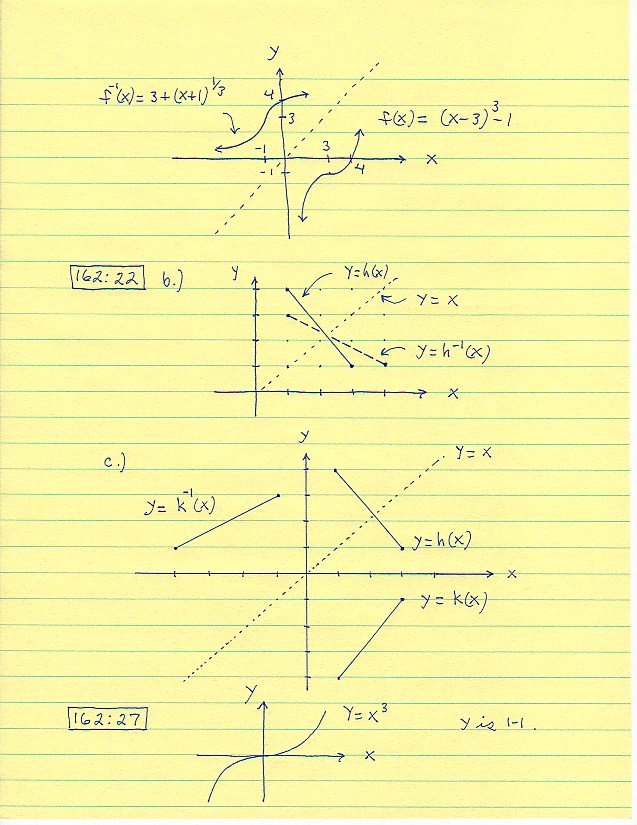 y
f⁻¹(x) = 3 + (x+1)^1/3
4
3
f(x) = (x-3)³ - 1
-1
3
4
x
-1
162:22 b.)
y
y = h(x)
y = x
y = h⁻¹(x)
x
c.)
y
y = x
y = k⁻¹(x)
y = h(x)
x
y = k(x)
162:27
y
y = x³
y is 1-1.
x